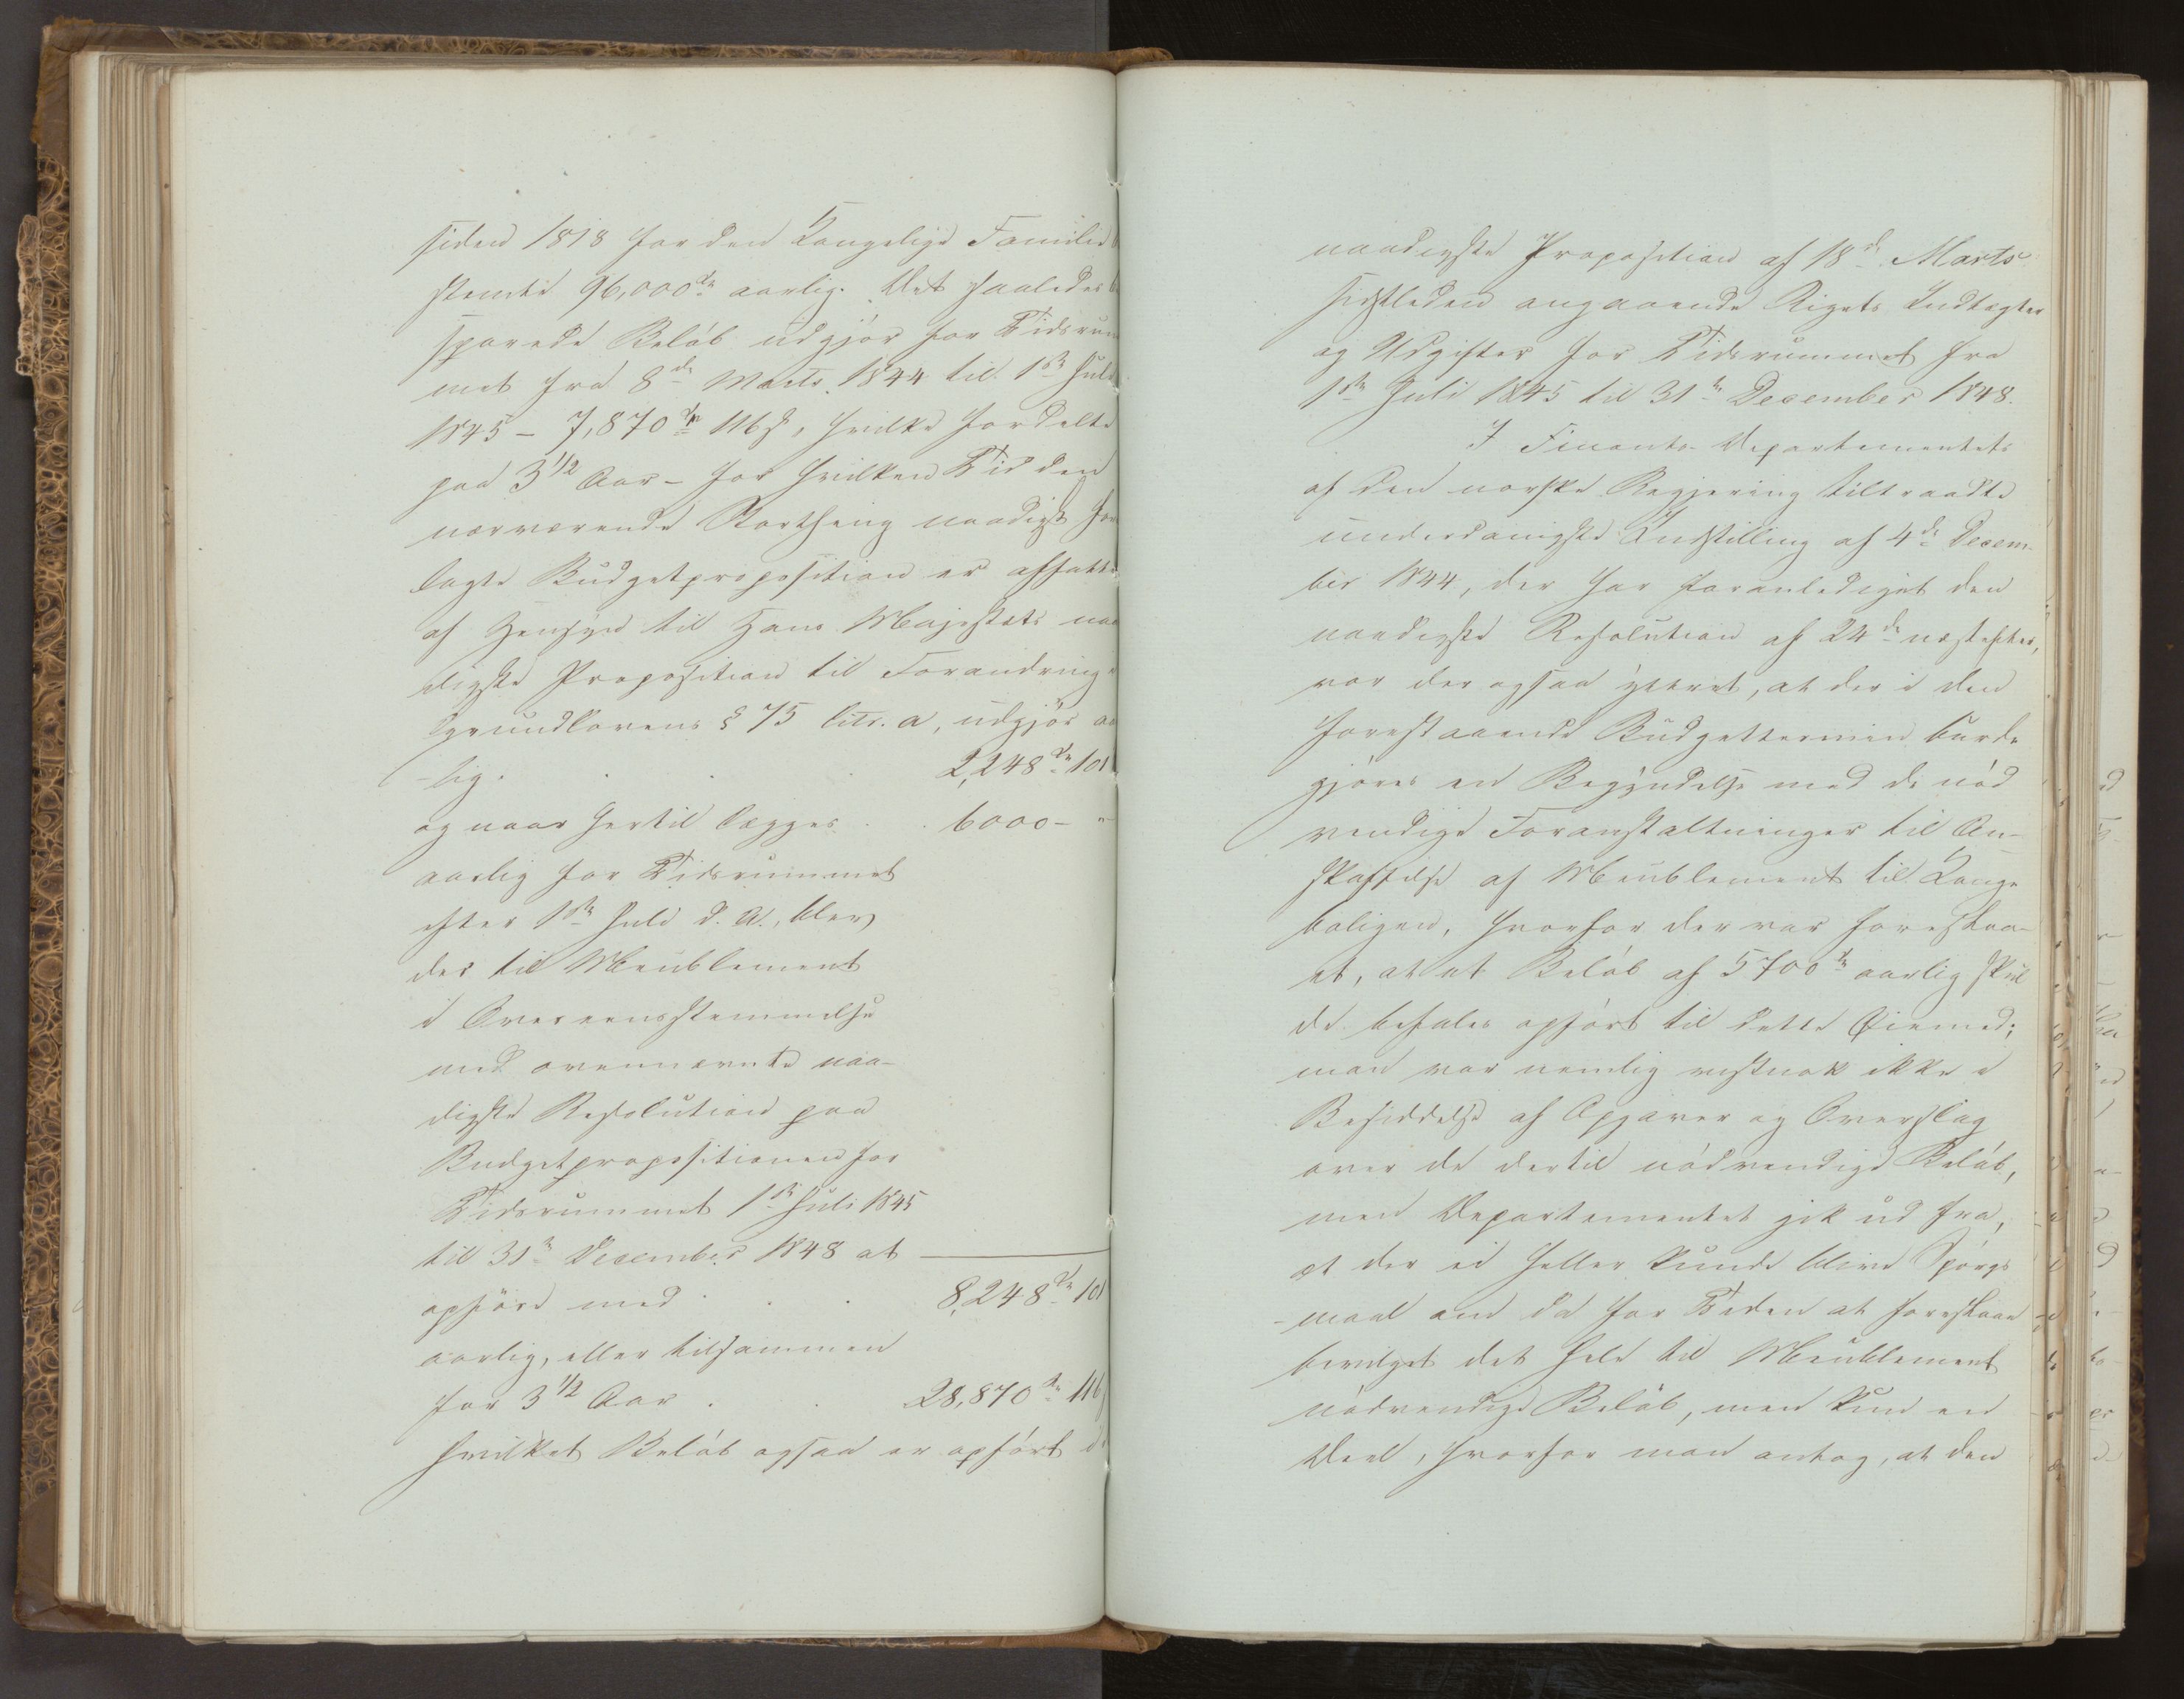 siden 1818 for den Kongelige Familie b
stemte 96,000 Spd aarlig. Det saaledes be
sparede Beløb udgjør for Tidsrum
met fra 8de Marts 1844 til 1ste Juli
1845 – 7,870 Spd 116 s, hvilke fordelte
paa 3 1/2 Aar – for hvilken Tid den
nærværende Storthing naadigst fore
lagte Budgetproposition er affattet
af Hensyn til Hans Majestæts naa
digste Proposition til Forandring
Grundlovens § 75 litr. a, udgjør aa
-lig . . . . 2,248 Spd 101
og naar hertil lægges . . 6000 – "
aarlig for Tidsrummet
efter 1ste Juli d. A., blev
der til Meublement
i Overeensstemmelse
med ovennævnte naa-
digste Resolution paa
Budgetpropositionen for
Tidsrummet 1ste Juli 1845
til 31te December 1848 at
opføre med . . . 8,248 Spd 101
aarlig, eller tilsammen
for 3 1/2 Aar . . 28,870 Spd 116
hvilket Beløb ogsaa er opført i
naadigste Proposition af 18de Marts
sidstleden angaaende Rigets Indtægter
og Udgifter for Tidsrummet fra
1ste Juli 1845 til 31te December 1848.
I Finants-Departementets
af den norske Regjering tiltraadte
underdanigste Indstilling af 4de Decem-
ber 1844, der har foranlediget den
naadigste Resolution af 24de næstefter,
var der ogsaa yttret, at der i den
forestaaende Budgettermin burde
gjøres en Begyndelse med de nød
vendige Foranstaltninger til An-
skaffelse af Meublement til Konge
boligen, hvorfor der var foreslaa-
et, at et Beløb af 5700 Spd aarlig skul
de befales opført til dette Øiemed;
man var nemlig vistnok ikke i
Besiddelse af Opgaver og Overslag
over de dertil nødvendige Beløb,
men Departementet gik ud fra,
at der ei heller kunde blive Spørgs
-maal om da for Tiden at foreslaae
bevilget det hele til Meublement
nødvendige Beløb, men kun en
Deel, hvorfor man antog, at den